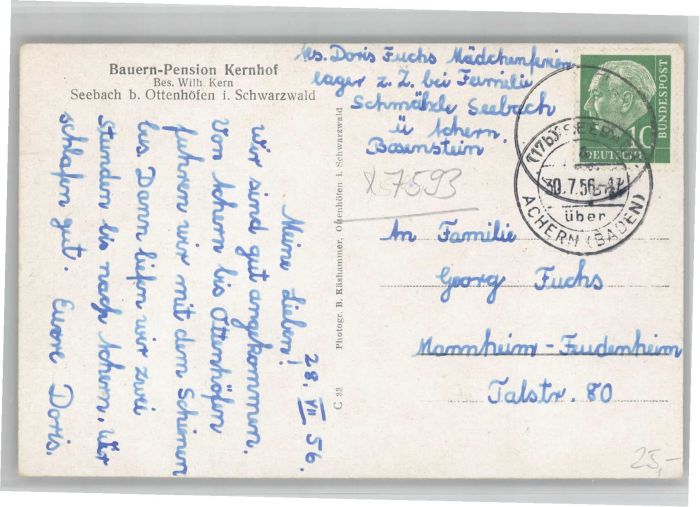 Bauern-Pension Kernhof
Bes. Wilh. Kern
Seebach b. Ottenhöfen i. Schwarzwald
Abs. Doris Fuchs Mädchenferien
lager z. Z. bei Familie
Schmälzle Seebach
ü Achern.
Bosenstein
X 7593
28. VII 56.
Meine Lieben!
Wir sind gut angekommen.
Von Achern bis Ottenhöfen
fuhren wir mit dem Schienen
bus. Dann liefen wir zwei
Stunden bis nach Achern. Wir
schlafen gut. Eure Doris.
Photogr. B. Käshammer, Ottenhöfen i. Schwarzwald
C 33
An Familie
Georg Fuchs
Mannheim-Feudenheim
Talstr. 80
DEUTSCHE
BUNDESPOST
10
(17b) SEEBACH
30.7.56
über
ACHERN (BADEN)
25,-